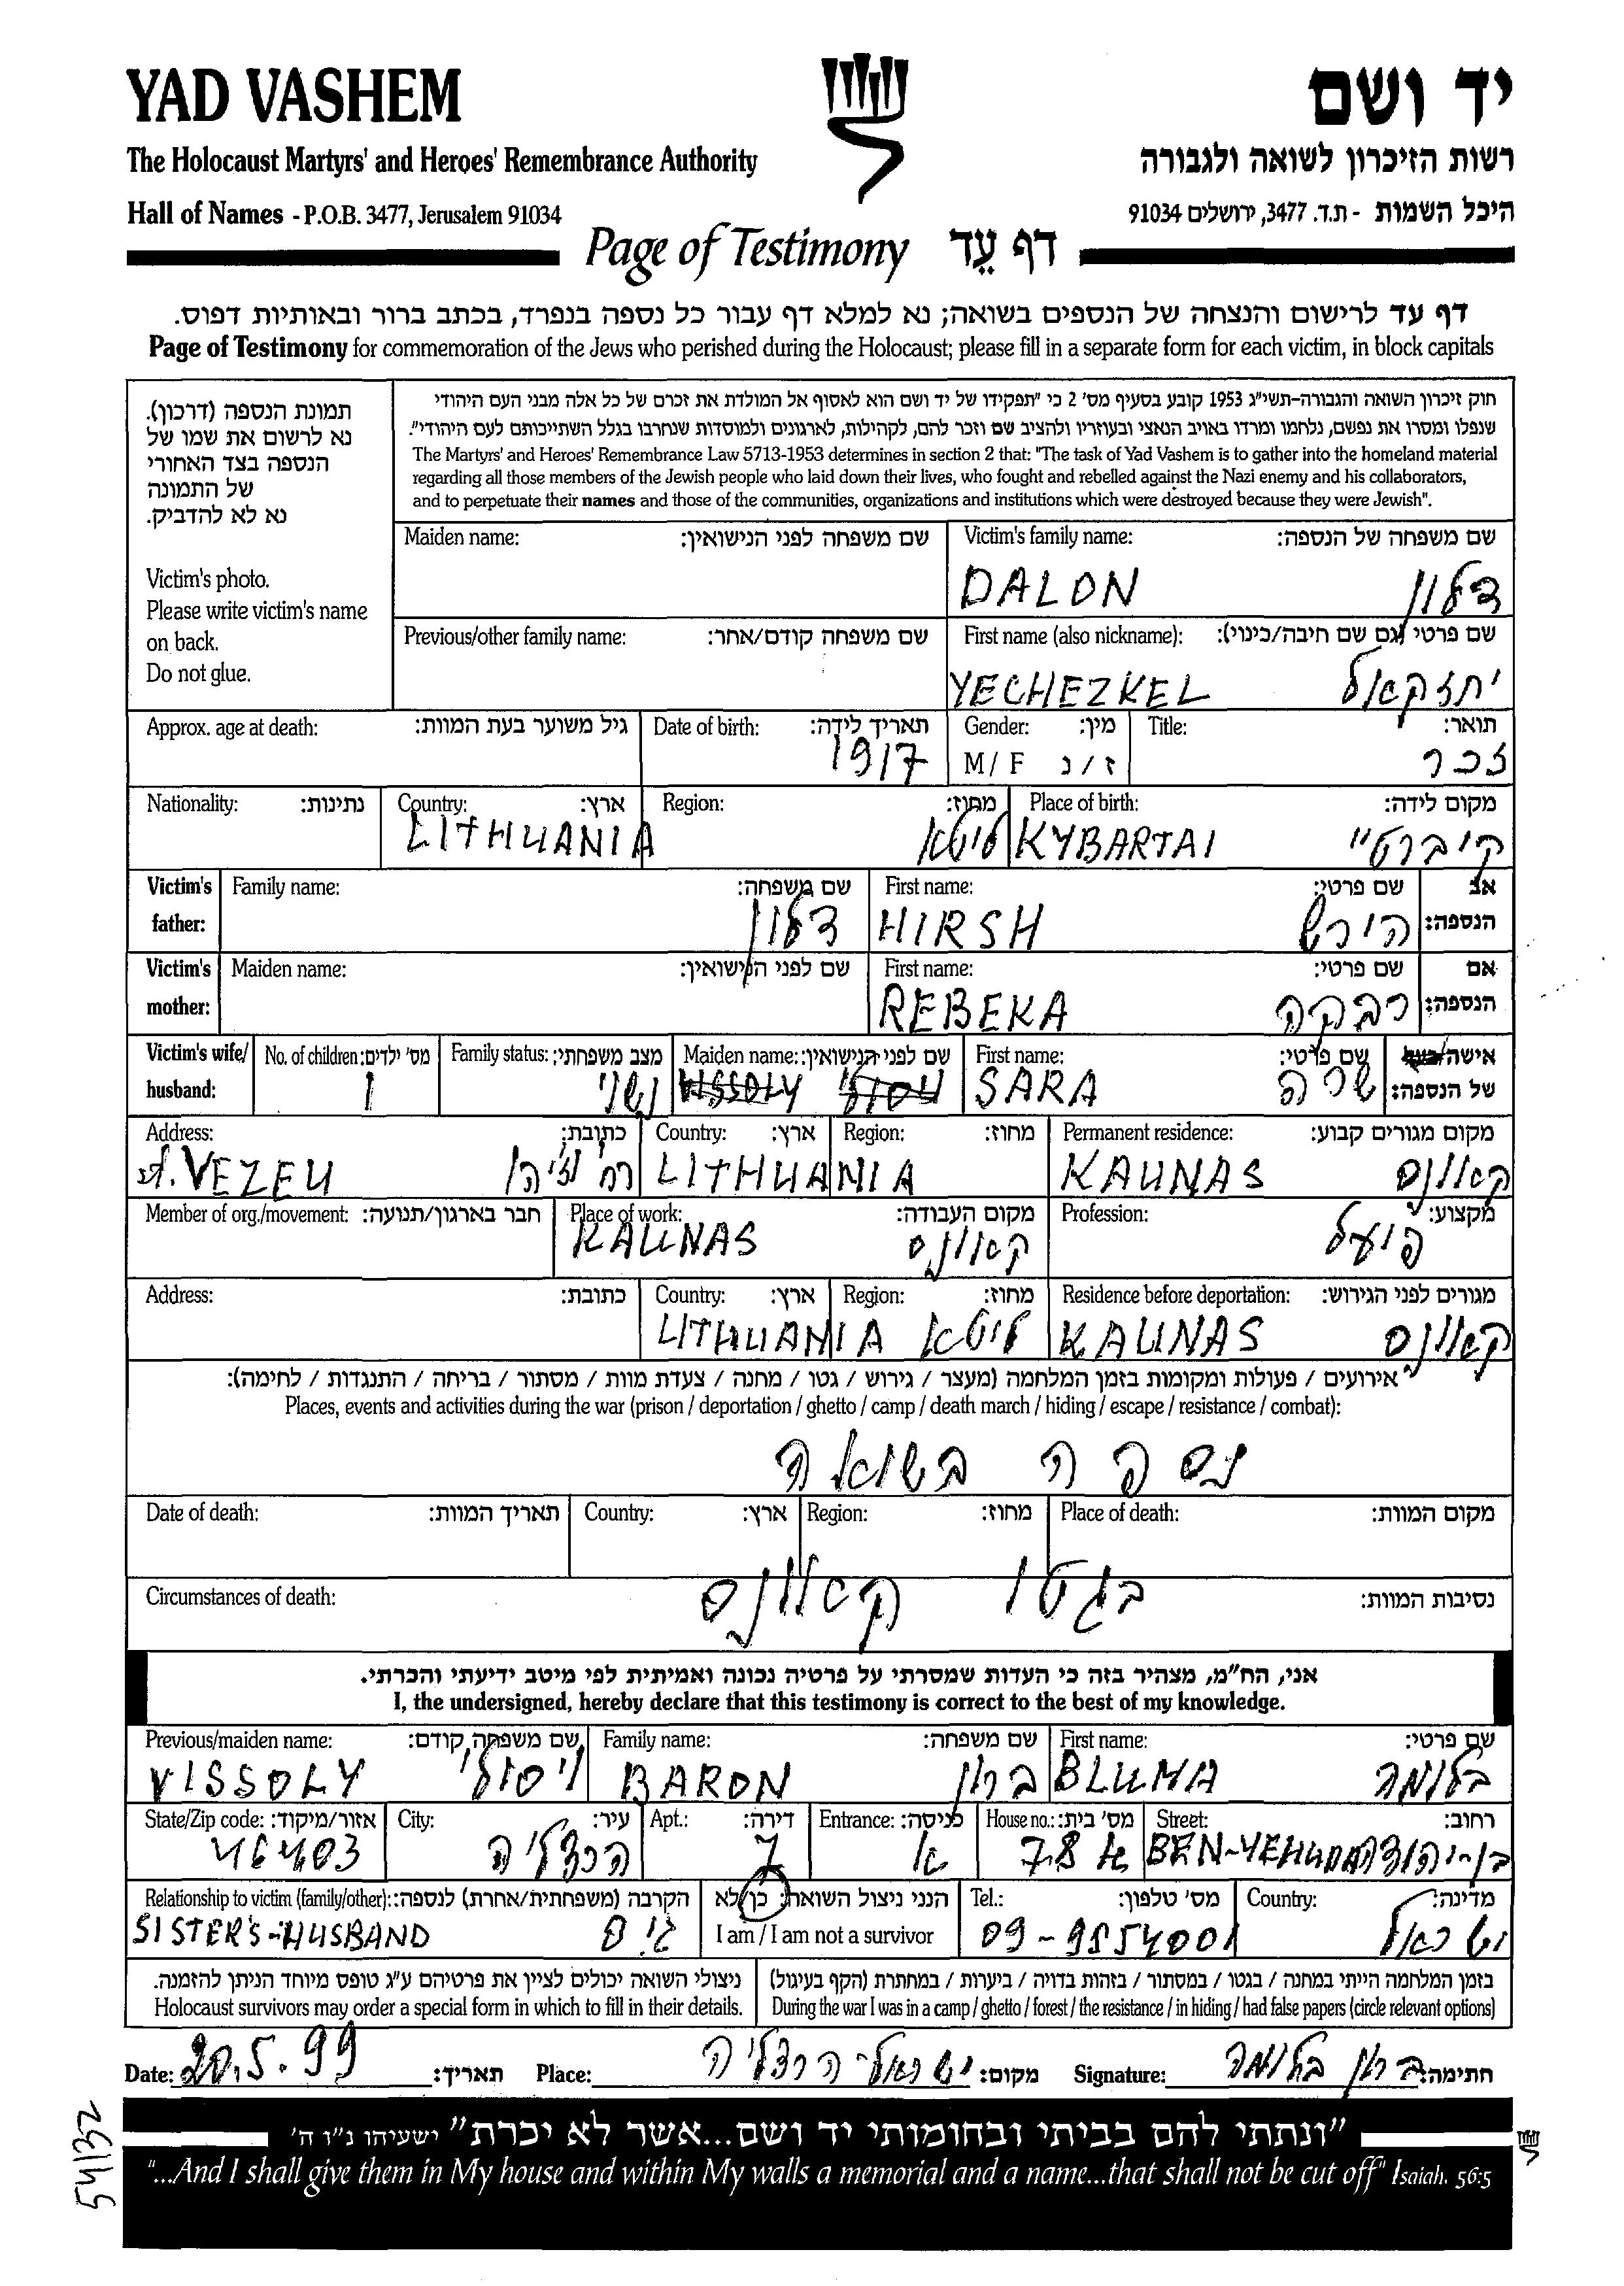 YAD VASHEM
יד ושם
The Holocaust Martyrs' and Heroes' Remembrance Authority
רשות הזיכרון לשואה ולגבורה
Hall of Names - P.O.B. 3477, Jerusalem 91034
היכל השמות - ת.ד. 3477, ירושלים 91034
Page of Testimony דף עֵד
דף עד לרישום והנצחה של הנספים בשואה; נא למלא דף עבור כל נספה בנפרד, בכתב ברור ובאותיות דפוס.
Page of Testimony for commemoration of the Jews who perished during the Holocaust; please fill in a separate form for each victim, in block capitals
תמונת הנספה (דרכון).
נא לרשום את שמו של
הנספה בצד האחורי
של התמונה
נא לא להדביק.
Victim's photo.
Please write victim's name
on back.
Do not glue.
חוק זיכרון השואה והגבורה-תשי"ג 1953 קובע בסעיף מס' 2 כי "תפקידו של יד ושם הוא לאסוף אל המולדת את זכרם של כל אלה מבני העם היהודי
שנפלו ומסרו את נפשם, נלחמו ומרדו באויב הנאצי ובעוזריו ולהציב שם וזכר להם, לקהילות, לארגונים ולמוסדות שנחרבו בגלל השתייכותם לעם היהודי".
The Martyrs' and Heroes' Remembrance Law 5713-1953 determines in section 2 that: "The task of Yad Vashem is to gather into the homeland material
regarding all those members of the Jewish people who laid down their lives, who fought and rebelled against the Nazi enemy and his collaborators,
and to perpetuate their names and those of the communities, organizations and institutions which were destroyed because they were Jewish".
Maiden name: שם משפחה לפני הנישואין:
Victim's family name: שם משפחה של הנספה:
DALON דלון
Previous/other family name: שם משפחה קודם/אחר:
First name (also nickname): שם פרטי (גם שם חיבה/כינוי):
YECHEZKEL יחזקאל
Approx. age at death: גיל משוער בעת המוות:
Date of birth: תאריך לידה:
1917
Gender: מין:
M / F ז / נ
Title: תואר:
זכר
Nationality: נתינות:
Country: ארץ:
LITHUANIA
Region: מחוז:
ליטא
Place of birth: מקום לידה:
KYBARTAI קיברטיי
Victim's father: Family name: שם משפחה:
דלון
First name: שם פרטי:
HIRSH הירש
אב הנספה:
Victim's mother: Maiden name: שם לפני הנישואין:
First name: שם פרטי:
REBEKA רבקה
אם הנספה:
Victim's wife/ husband:
No. of children: מס' ילדים:
1
Family status: מצב משפחתי:
נשוי
Maiden name: שם לפני הנישואין:
First name: שם פרטי:
SARA שרה
אישה
של הנספה:
Address: כתובת:
st. VEZEU
Country: ארץ: Region: מחוז:
LITHUANIA
Permanent residence: מקום מגורים קבוע:
KAUNAS קאוונס
Member of org./movement: חבר בארגון/תנועה:
Place of work: מקום העבודה:
KAUNAS קאוונס
Profession: מקצוע:
פועל
Address: כתובת:
Country: ארץ: Region: מחוז:
LITHUANIA ליטא
Residence before deportation: מגורים לפני הגירוש:
KAUNAS קאוונס
אירועים / פעולות ומקומות בזמן המלחמה (מעצר / גירוש / גטו / מחנה / צעדת מוות / מסתור / בריחה / התנגדות / לחימה):
Places, events and activities during the war (prison / deportation / ghetto / camp / death march / hiding / escape / resistance / combat):
נספה בשואה
Date of death: תאריך המוות:
Country: ארץ:
Region: מחוז:
Place of death: מקום המוות:
Circumstances of death: נסיבות המוות:
בגטו קאוונס
אני, הח"מ, מצהיר בזה כי העדות שמסרתי על פרטיה נכונה ואמיתית לפי מיטב ידיעתי והכרתי.
I, the undersigned, hereby declare that this testimony is correct to the best of my knowledge.
Previous/maiden name: שם משפחה קודם:
VISSOLY ויסולי
Family name: שם משפחה:
BARON ברון
First name: שם פרטי:
BLUMA בלומה
State/Zip code: אזור/מיקוד:
46403
City: עיר:
הרצליה
Apt.: דירה:
7
Entrance: כניסה:
א
House no.: מס' בית:
78 א
Street: רחוב:
BEN-YEHUDA בן-יהודה
Relationship to victim (family/other): הקרבה (משפחתית/אחרת) לנספה:
SISTER'S-HUSBAND גיס
הנני ניצול השואה: כן לא
I am / I am not a survivor
Tel.: מס' טלפון:
09-9554001
Country: מדינה:
ישראל
ניצולי השואה יכולים לציין את פרטיהם ע"ג טופס מיוחד הניתן להזמנה.
Holocaust survivors may order a special form in which to fill in their details.
בזמן המלחמה הייתי במחנה / בגטו / במסתור / בזהות בדויה / ביערות / במחתרת (הקף בעיגול)
During the war I was in a camp / ghetto / forest / the resistance / in hiding / had false papers (circle relevant options)
Date: 20.5.99 תאריך: Place: ישראל-הרצליה מקום: Signature: ברון בלומה חתימה:
"ונתתי להם בביתי ובחומותי יד ושם...אשר לא יכרת" ישעיהו נ"ו ה'
"...And I shall give them in My house and within My walls a memorial and a name...that shall not be cut off" Isaiah. 56:5
54132